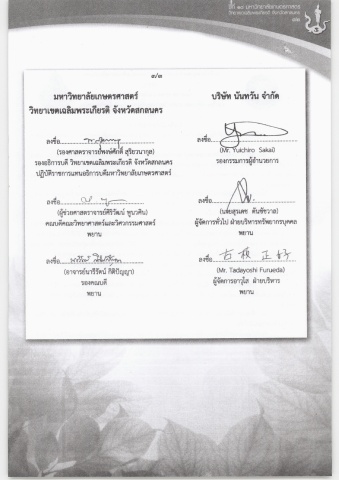 ๓/๓
มหาวิทยาลัยเกษตรศาสตร์
วิทยาเขตเฉลิมพระเกียรติ จังหวัดสกลนคร
ลงชื่อ
(รองศาสตราจารย์พงษ์ศักดิ์ สุริยวนากุล)
รองอธิการบดี วิทยาเขตเฉลิมพระเกียรติ จังหวัดสกลนคร
ปฏิบัติราชการแทนอธิการบดีมหาวิทยาลัยเกษตรศาสตร์
ลงชื่อ
(ผู้ช่วยศาสตราจารย์ศิริวัฒน์ ทูนวศิน)
คณบดีคณะวิทยาศาสตร์และวิศวกรรมศาสตร์
พยาน
ลงชื่อ
(อาจารย์นารีรัตน์ กิติปัญญา)
รองคณบดี
พยาน
บริษัท นันทวัน จำกัด
ลงชื่อ
(Mr. Yuichiro Sakai)
รองกรรมการผู้อำนวยการ
ลงชื่อ
ผู้จัดการทั่วไป ฝ่ายบริหารทรัพยากรบุคคล
พยาน
ลงชื่อ
(Mr. Tadayoshi Furueda)
ผู้จัดการอาวุโส ฝ่ายบริหาร
พยาน